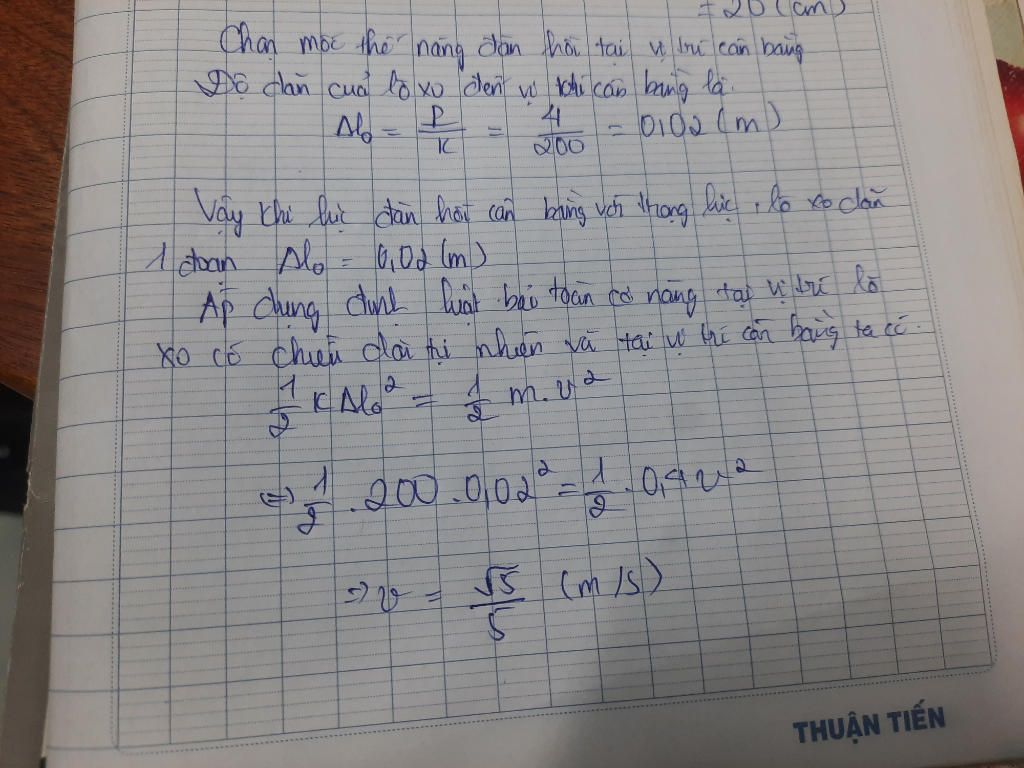 = 20 (cm)
Chọn mốc thế năng đàn hồi tại vị trí cân bằng
Độ dãn cuả lò xo đến vị trí cân bằng là.
Δl₀ = P/K = 4/200 = 0,02 (m)
Vậy khi lực đàn hồi cân bằng với trọng lực, lò xo dãn
1 đoạn Δl₀ = 0,02 (m)
Áp dụng định luật bảo toàn cơ năng tại vị trí lò
xo có chiều dài tự nhiên và tại vị trí cân bằng ta có.
1/2 K Δl₀² = 1/2 m.v²
⇔ 1/2 . 200 . 0,02² = 1/2 . 0,4 v²
⇒ v = √5/5 (m/s)
THUẬN TIẾN